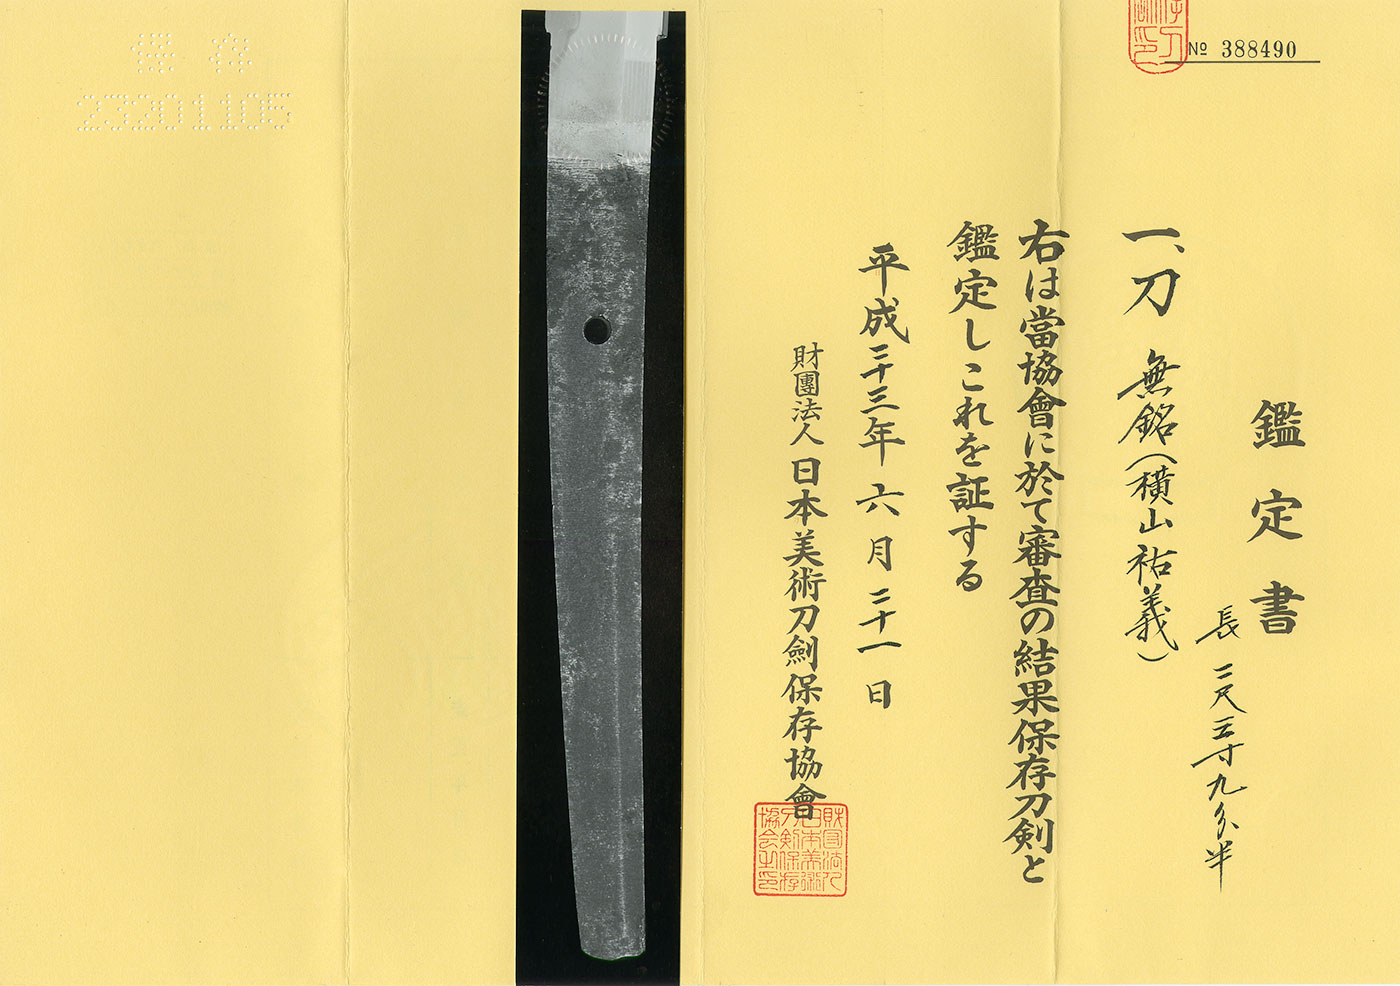 № 388490
鑑定書
一、刀 無銘(横山祐義)
長 二尺三寸九分半
右は當協會に於て審査の結果保存刀剣と
鑑定しこれを証する
平成二十三年六月二十一日
財團法人日本美術刀劍保存協會
財団法人日本美術刀剣保存協会之印
保存
23201105